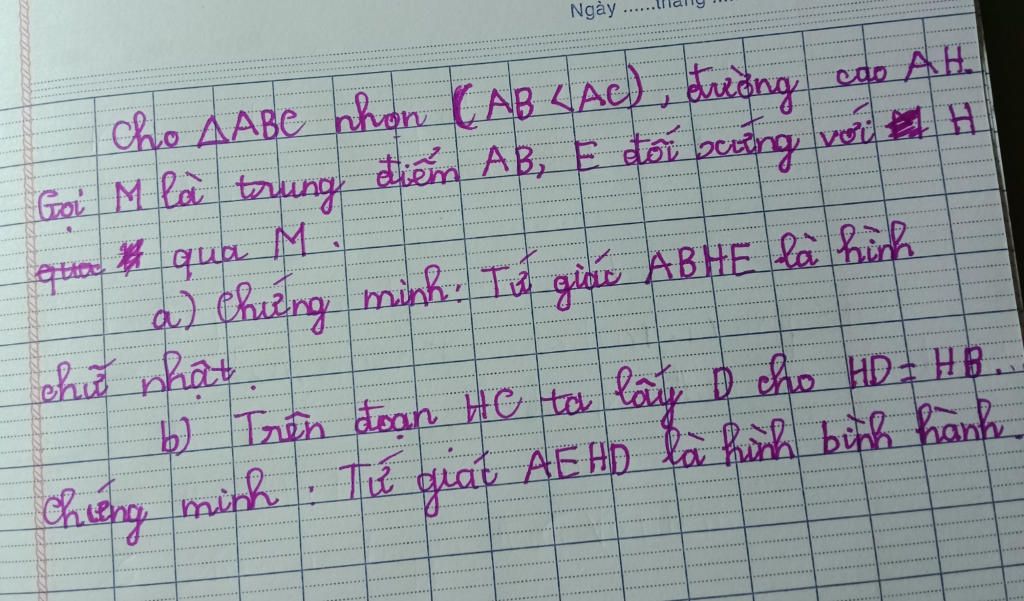 Ngày ......tháng ....
Cho ΔABC nhọn (AB < AC), đường cao AH.
Gọi M là trung điểm AB, E đối xứng với H
qua M.
a) Chứng minh: Tứ giác ABHE là hình
chữ nhật.
b) Trên đoạn HC ta lấy D cho HD = HB...
Chứng minh: Tứ giác AEHD là hình bình hành.